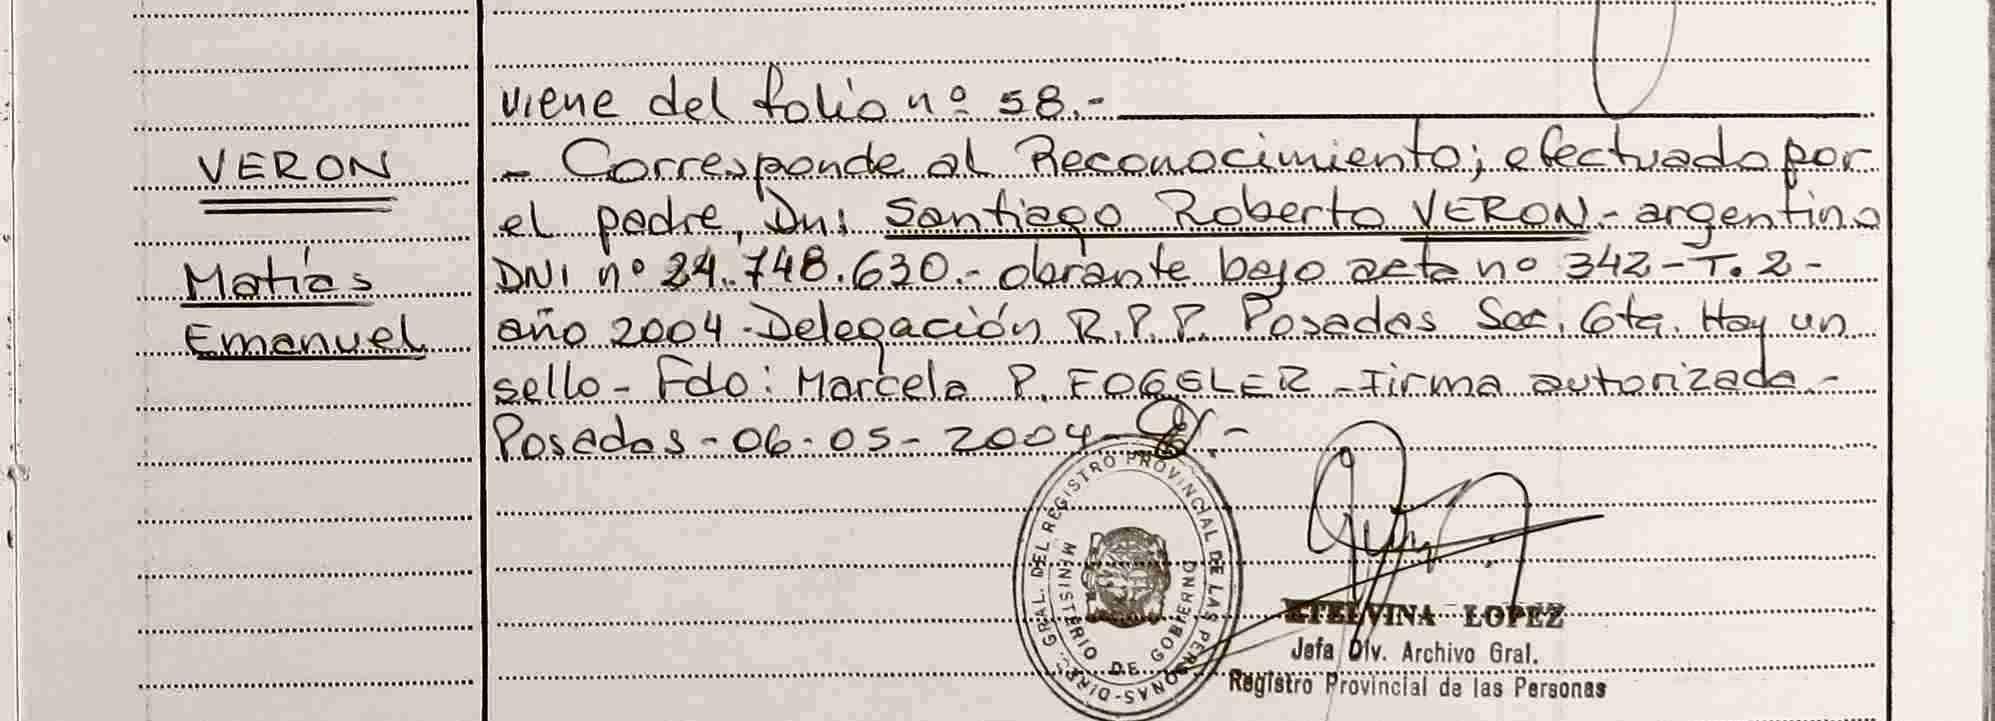 viene del folio nº 58.-
VERON
- Corresponde al Reconocimiento; efectuado por
el padre, Dn: Santiago Roberto VERON.- argentino
Matías
DNI nº 24.748.630.- obrante bajo acta nº 342-T. 2-
Emanuel
año 2004.-Delegación R.P.P. Posadas Sec. 6ta. Hay un
sello- Fdo: Marcela P. FOGGLER -Firma autorizada.-
Posadas-06-05-2004-
DIREC. GRAL. DEL REGISTRO PROVINCIAL DE LAS PERSONAS-
MINISTERIO DE GOBIERNO
ETELVINA LOPEZ
Jefa Div. Archivo Gral.
Registro Provincial de las Personas